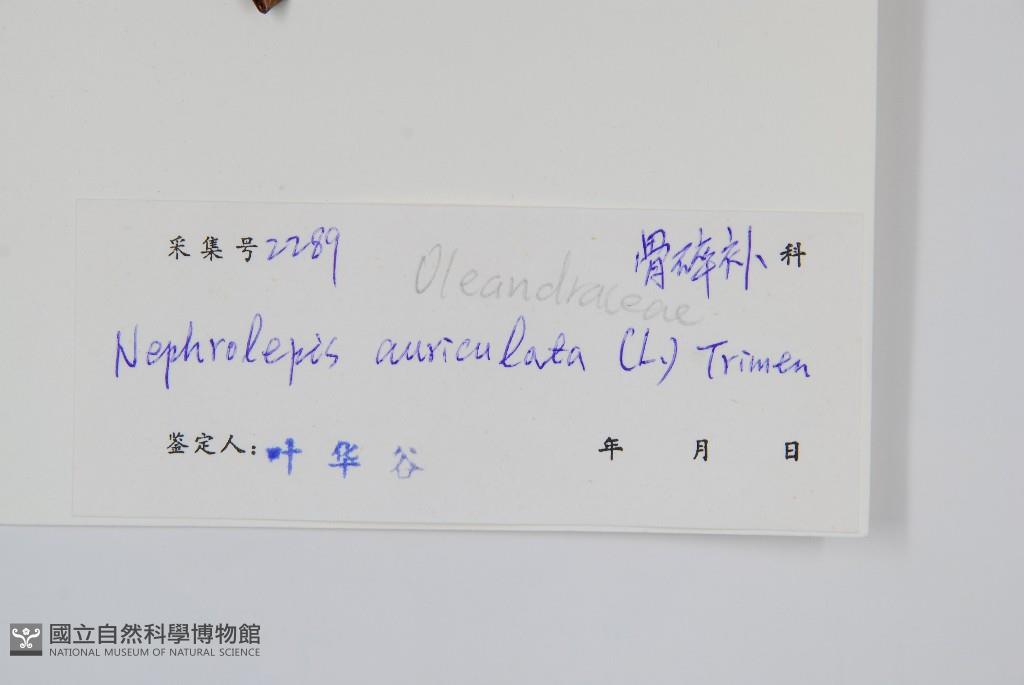 采集号2289 骨碎补科
Oleandraceae
Nephrolepis auriculata (L.) Trimen
鉴定人:叶华谷 年 月 日
國立自然科學博物館
NATIONAL MUSEUM OF NATURAL SCIENCE